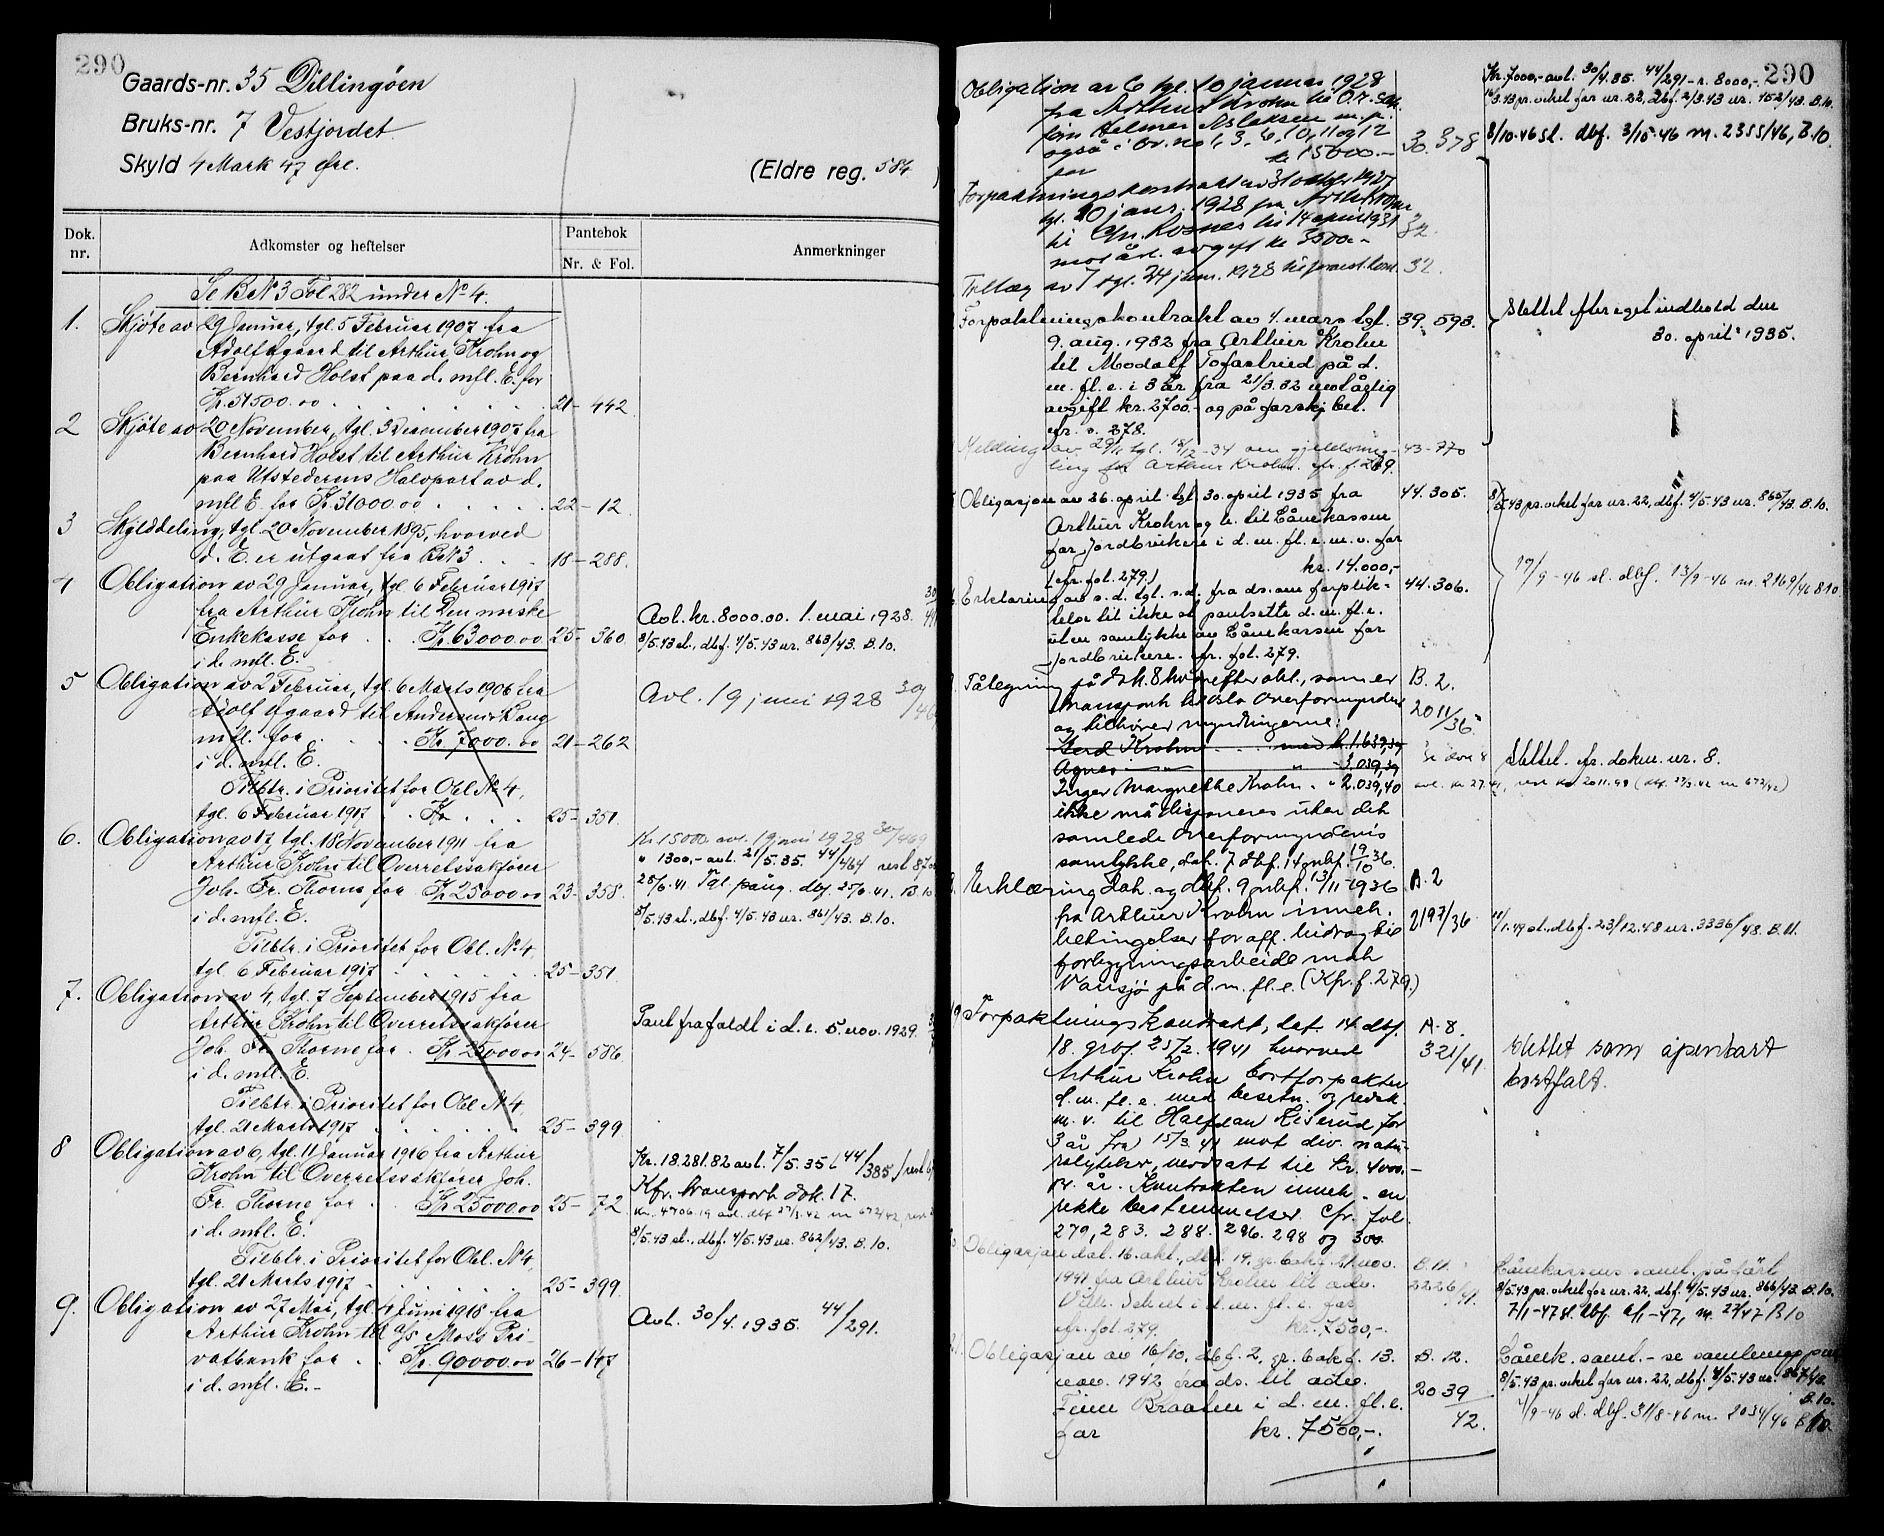 290
Gaards-nr. 35 Dillingøen
Bruks-nr. 7 Vestjordet
Skyld 4 Mark 47 Øre.
(Eldre reg. 584 )
Dok. nr.
Adkomster og heftelser
Pantebok
Nr. & Fol.
Anmerkninger
Se B№3 Fol 282 under №4.
1. Skjøte av 29 Januar, tgl. 5 Februar 1907 fra
Adolf Agaard til Arthur Krohn og
Bernhard Holst paa d. mfl. E. for
Kr. 51500.00 . . . 21-442
2 Skjøte av 20 November, tgl. 3 December 1907 fra
Bernhard Holst til Arthur Krohn
paa Utstederens Halvpart av d.
mfl E. for Kr. 31000.00 . . . 22-12.
3 Skylddeling, tgl. 20 November 1895, hvorved
d. E. er utgaat fra B№3 . . . 18-288.
4 Obligation av 29 Januar, tgl 6 Februar 1917
fra Arthur Krohn til Den norske
Enkekasse for . . Kr. 63000.00 25-360
i d. mfl. E.
Avl. kr. 8000.00. 1. mai 1928.
8/5.43 sl., dbf. 4/5.43 nr. 863/43. B.10.
5 Obligation av 2 Februar, tgl. 6 Marts 1906 fra
Adolf Agaard til Anders
mfl. for . . Kr. 7000.00 21-262
i d. mfl. E.
Avl. 19 juni 1928
Tilbtr. i Prioritet for Obl. №4,
tgl. 6 Februar 1917 . . 25-351.
6. Obligation av 17, tgl. 18 November 1911 fra
Arthur Krohn til Overretssakfører
Joh. Fr. Thorne for Kr. 25000.00 23-358.
i d. mfl. E.
Kr. 15000 avl. 19 juni 1928 30/469
" 1300,- avl. 21/5.35. 44/464 rest 8700
25/6.41 Tgl. påteg. dbf 25/6.41. B.10
8/5.43 sl., dbf. 4/5.43 nr. 861/43. B.10.
Tilbtr. i Prioritet for Obl. №4,
tgl. 6 Februar 1917 . . . 25-351.
7. Obligation av 4, tgl. 7 September 1915 fra
Arthur Krohn til Overretssakfører
Joh. Fr. Thorne for . Kr. 25000.00 24-586
i d. mfl. E.
Pant frafaldt i d. e. 5. nov. 1929.
Tilbtr. i Prioritet for Obl №4,
tgl. 21 Marts 1917 . . . 25-399.
8 Obligation av 6, tgl. 11 Januar 1916 fra Arthur
Krohn til Overretssakfører Joh.
Fr. Thorne for . . Kr. 25000.00 25-72
i d. mfl. E.
Kr. 18.281.82 avl. 7/5.35 (44/385) rest
Kfr. transport dok. 17.
Kr. 4706.19 avl. dbf 27/3.42 nr 672/42, rest
8/5.43 sl., dbf. 4/5.43 nr. 862/43. B.10.
Tilbtr. i Prioritet for Obl. №4,
tgl. 21 Marts 1917 . . . 25-399.
9. Obligation av 27 Mai, tgl. 4 Juni 1918 fra
Arthur Krohn til A/S Moss Pri-
vatbank for . . Kr. 90000.00 26-147
i d. mfl. E.-
Avl. 30/4. 1935. 44/291.
290
Obligation av 6 tgl. 10 januar 1928
fra Arthur Krohn til O.r.sak.
fører Helmer Aslaksen m.p.
også i br. no 1, 3, 6, 10, 11 og 12
for kr. 15000.- 30.378
Kr. 7000,- avl. 30/4.35. 44/291 - r. 8000,-
16/3.43 pr. vikel for nr. 22, dbf. 2/3.43 nr. 452/43. B.10.
8/10.46 sl. dbf. 3/10-46 nr. 2355/46, B.10.
Forpaktningskontrakt av 31 oktober 1927
tgl. 10 janr. 1928 fra Arthur Krohn
til Chr. Rosnes til 14 april 1931
mot årl. avgift kr 3500.- 32.
Tillæg av 7 tgl. 24 jan. 1928 til foranst. kont. 32.
Forpaktningskontrakt av 1. mars tgl. 39.593.
9. aug. 1932 fra Arthur Krohn
til Modolf Tofastrud på d.
m. fl. e. i 3 år fra 21/3.32 mot årlig
avgift kr. 2700.- og på forskj. bet.
cfr. s. 278.
Slettet efter eget indhold den
30. april 1935.
Melding av 29/11 tgl. 18/12-34 om gjeldsmeg- 43-770
ling fra Arthur Krohn. cfr. f. 279.
Obligasjon av 26. april tgl. 30. april 1935 fra 44.305.
Arthur Krohn og h. til Lånekassen
for Jordbrukere i d. m. fl. e. m. v. for
(cfr. fol. 279.) kr. 14.000,-
8/5.43 pr. vikel for nr. 22, dbf. 4/5.43 nr. 865/43. B.10.
17/9-46 sl. dbf. 13/9-46 nr. 2169/46 B10
Erklæring av s. d. tgl. s. d. fra ds. om forplik- 44.306.
telse til ikke at pantsette d. m. fl. e.
uten samtykke av Lånekassen for
Jordbrukere. cfr. fol. 279.
Påtegning på dok. 8 hvorefter obl., som er B. 2.
transport. til Oslo Overformynderi 2011/36
og tilhører myndlingerne:
Gerd Krohn . . med kr. 1.639,39
Agnes " " 3.039,39
Inger Margrethe Krohn . " 2.039,40
ikke må disponeres uten det
samlede Overformynderis
samtykke, dat. 7. dbf. 14 nbf. 19/10 36.
Slettet. fr. dokm. nr. 8.
Erklæring dat. og dbf. 9 nbf. 13/11-1936 A. 2
fra Arthur Krohn inneh. 2197/36
betingelser for off. bidrag til
forbygningsarbeide m. h.
Vansjø på d. m. fl. e. (Kfr. f. 279.)
11/1.49 sl. dbf. 23/12.48 nr. 3336/48. B.11.
Forpaktningskontrakt, dat. 14. dbf. A. 8.
18. grbf. 25/2. 1941 hvorved 321/41.
Arthur Krohn bortforpakter
d. m. fl. e. med besetn. og redsk.
m. v. til Halfdan Kiserud for
3 år fra 15/3.41 mot div. natu-
ralytelser, verdsatt til kr. 4000.-
pr. år. Kontrakten inneh. en
rekke bestemmelser. Cfr. fol.
279, 283. 288. 296. 298 og 300.
Slettet som åpenbart
bortfalt.
Obligasjon dat. 16. okt., dbf. 19. gr. bokf. 21 nov. B. 11.
1941 fra Arthur Krohn til adv. 2226/41.
i d. m. fl. e. for
cfr. fol. 279. kr. 7500,-.
Lånekassens samt. påført
8/5.43 pr. vikel for nr. 22, dbf. 4/5.43 nr. 866/43. B.10.
7/1-47 sl. dbf. 4/1-47, nr. 27/47 B10
Obligasjon av 16/10, dbf. 2, gr. bokf. 13. B. 12.
nov. 1942 fra ds. til adv. 2039/42.
Finn Braaten i d. m. fl. e.
for kr. 7500,-.
Lånek. samt. - se
8/5.43 pr. vikel for nr. 22, dbf. 4/5.43 nr. 867/43. B.10.
4/9-46 sl. dbf. 31/8-46 nr. 2034/46 B10.